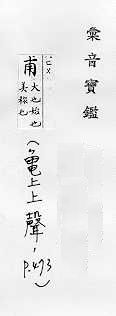 彙音寶鑑
甫
大也始也
美稱也
(龜上上聲,
P.473)